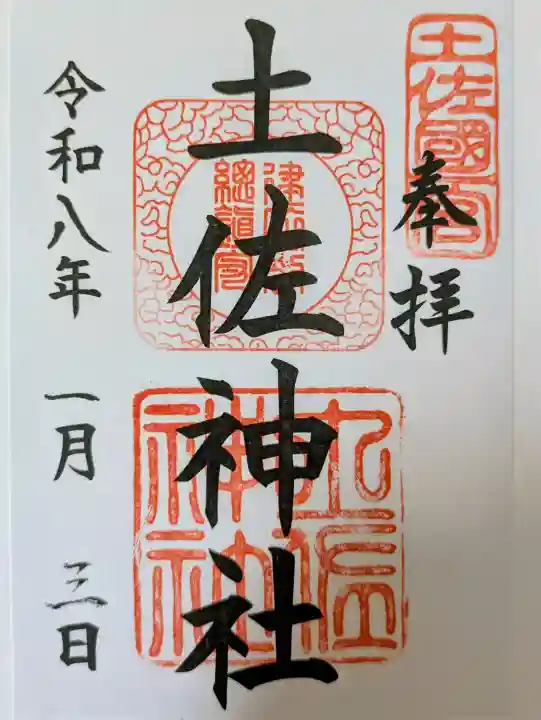 奉拝
土佐國一宮
土佐神社
土佐神社
令和八年 一月 三日